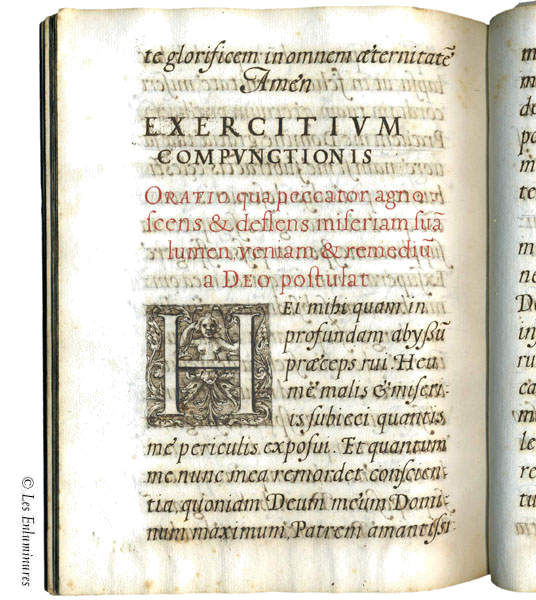 te glorificem in omnem æternitatē
Amen
EXERCITIVM
COMPVNCTIONIS
ORATIO qua peccator agno
scens & deflens miseriam suā
lumen, veniam, & remediū
a DEO postulat
HEi mihi quam in
profundam abyssū
præceps rui Heu
me malis & miseri-
is subieci quantis
me periculis exposui. Et quantum
me nunc mea remordet conscien-
tia quoniam Deum meum Domi-
num maximum Patrem amantissi
m
ne
le
re
tu
© Les Enluminures